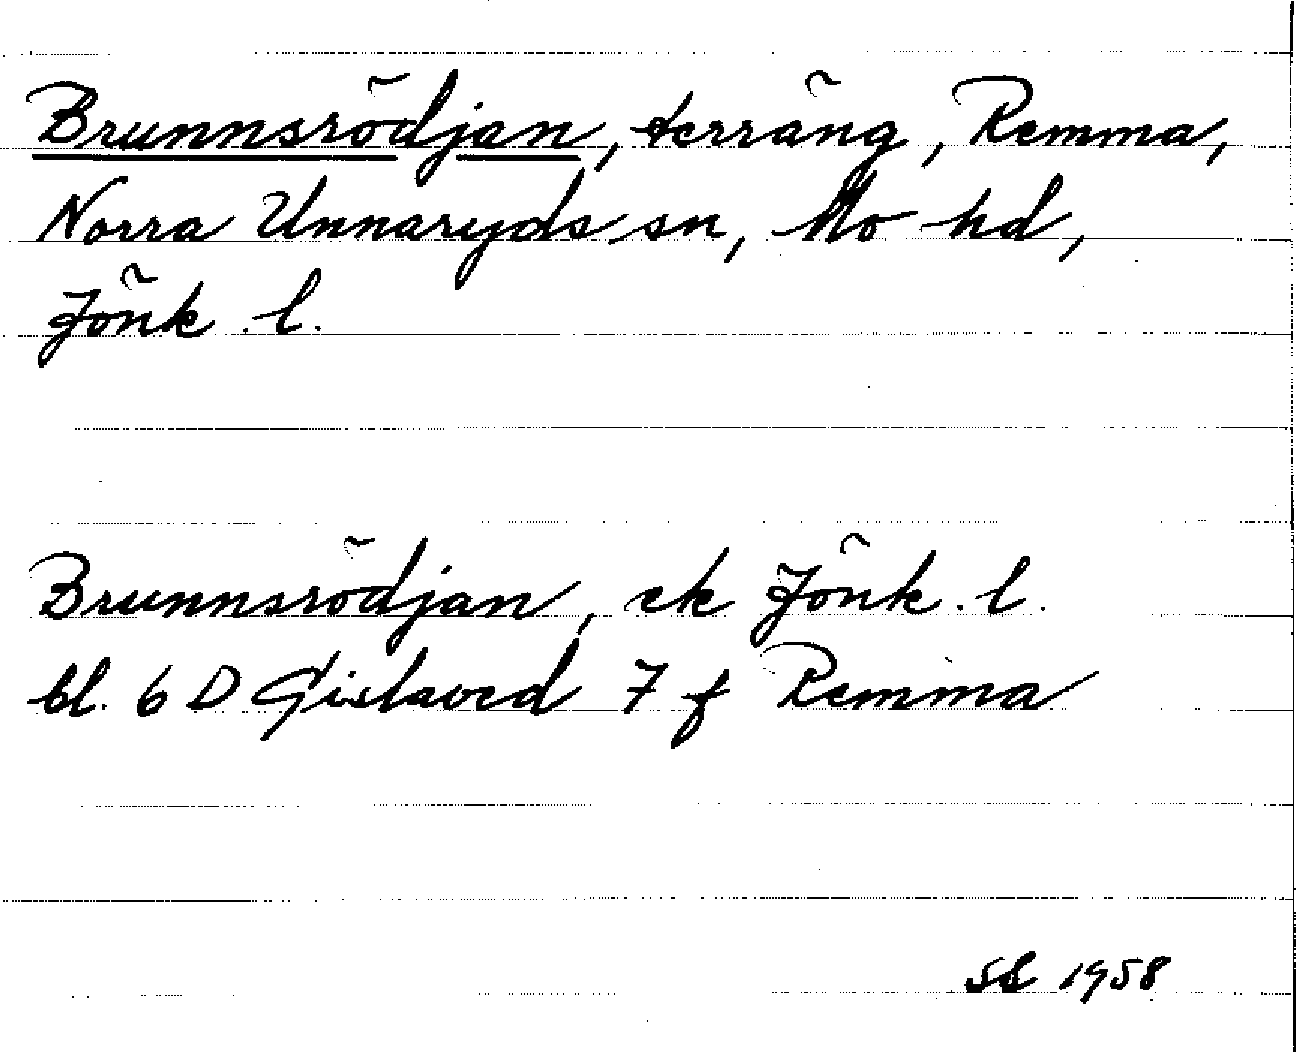 Brunnsrödjan, terräng, Remma,
Norra Unnaryds sn, Mo hd,
Jönk. l.
Brunnsrödjan, ek Jönk. l.
bl. 6 D Gislaved 7 f Remma
1958